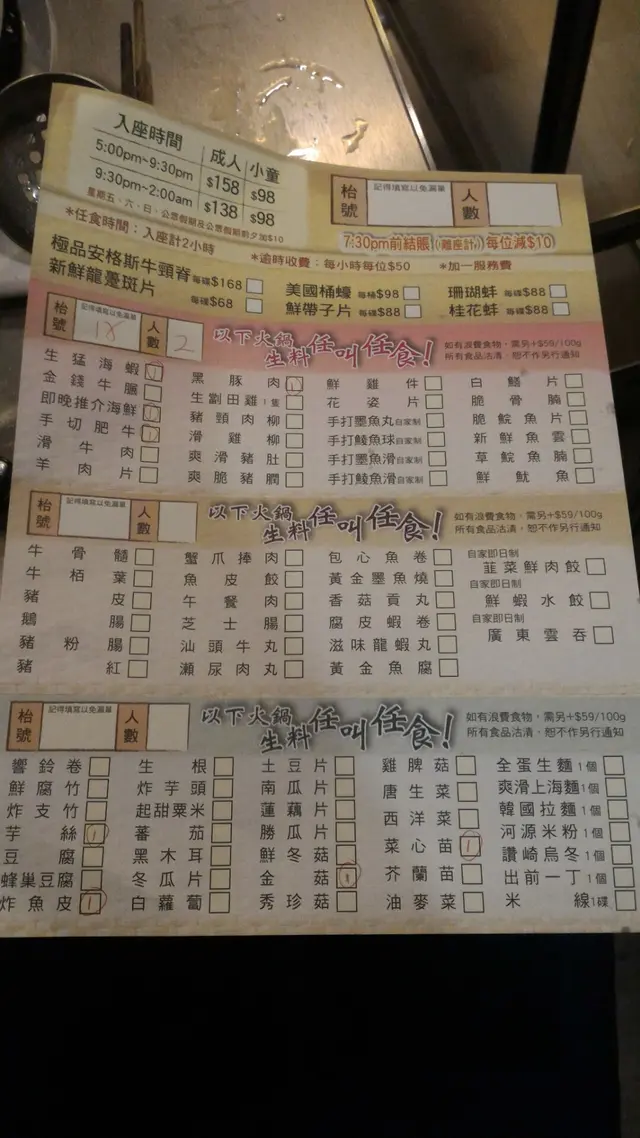 入座時間 成人 小童
5:00pm~9:30pm $158 $98
9:30pm~2:00am $138 $98
星期五、六、日、公眾假期及公眾假期前夕加$10
枱號 記得填寫以免漏單 人數
*任食時間：入座計2小時
7:30pm前結賬(離座計)每位減$10
*逾時收費：每小時每位$50 *加一服務費
極品安格斯牛頸脊 每碟$168 美國桶蠔 每桶$98 珊瑚蚌 每碟$88
新鮮龍躉斑片 每碟$68 鮮帶子片 每碟$88 桂花蚌 每碟$88
枱號 記得填寫以免漏單 18 人數 2
以下火鍋生料任叫任食！
如有浪費食物，需另+$59/100g
所有食品沽清，恕不作另行通知
生猛海蝦 1 黑豚肉 1 鮮雞件 白鱔片
金錢牛𦟌 生劏田雞 1隻 花姿片 脆骨腩
即晚推介海鮮 1 豬頸肉柳 手打墨魚丸 自家制 脆鯇魚片
手切肥牛 1 滑雞柳 手打鯪魚球 自家制 新鮮魚雲
滑牛肉 爽滑豬肚 手打墨魚滑 自家制 草鯇魚腩
羊肉片 爽脆豬膶 手打鯪魚滑 自家制 鮮魷魚
枱號 記得填寫以免漏單 人數
以下火鍋生料任叫任食！
如有浪費食物，需另+$59/100g
所有食品沽清，恕不作另行通知
牛骨髓 蟹爪捧肉 包心魚卷 自家即日制 韮菜鮮肉餃
牛栢葉 魚皮餃 黃金墨魚燒 自家即日制 鮮蝦水餃
豬皮 午餐肉 香菇貢丸 自家即日制 廣東雲吞
鵝腸 芝士腸 腐皮蝦卷
豬粉腸 汕頭牛丸 滋味龍蝦丸
豬紅 瀨尿肉丸 黃金魚腐
枱號 記得填寫以免漏單 人數
以下火鍋生料任叫任食！
如有浪費食物，需另+$59/100g
所有食品沽清，恕不作另行通知
響鈴卷 生根 土豆片 雞脾菇 全蛋生麵 1個
鮮腐竹 炸芋頭 南瓜片 唐生菜 爽滑上海麵 1個
炸支竹 起甜粟米 蓮藕片 西洋菜 韓國拉麵 1個
芋絲 1 蕃茄 勝瓜片 菜心苗 1 河源米粉 1個
豆腐 黑木耳 鮮冬菇 芥蘭苗 讚崎烏冬 1個
蜂巢豆腐 冬瓜片 金菇 1 油麥菜 出前一丁 1個
炸魚皮 1 白蘿蔔 秀珍菇 米線 1碟